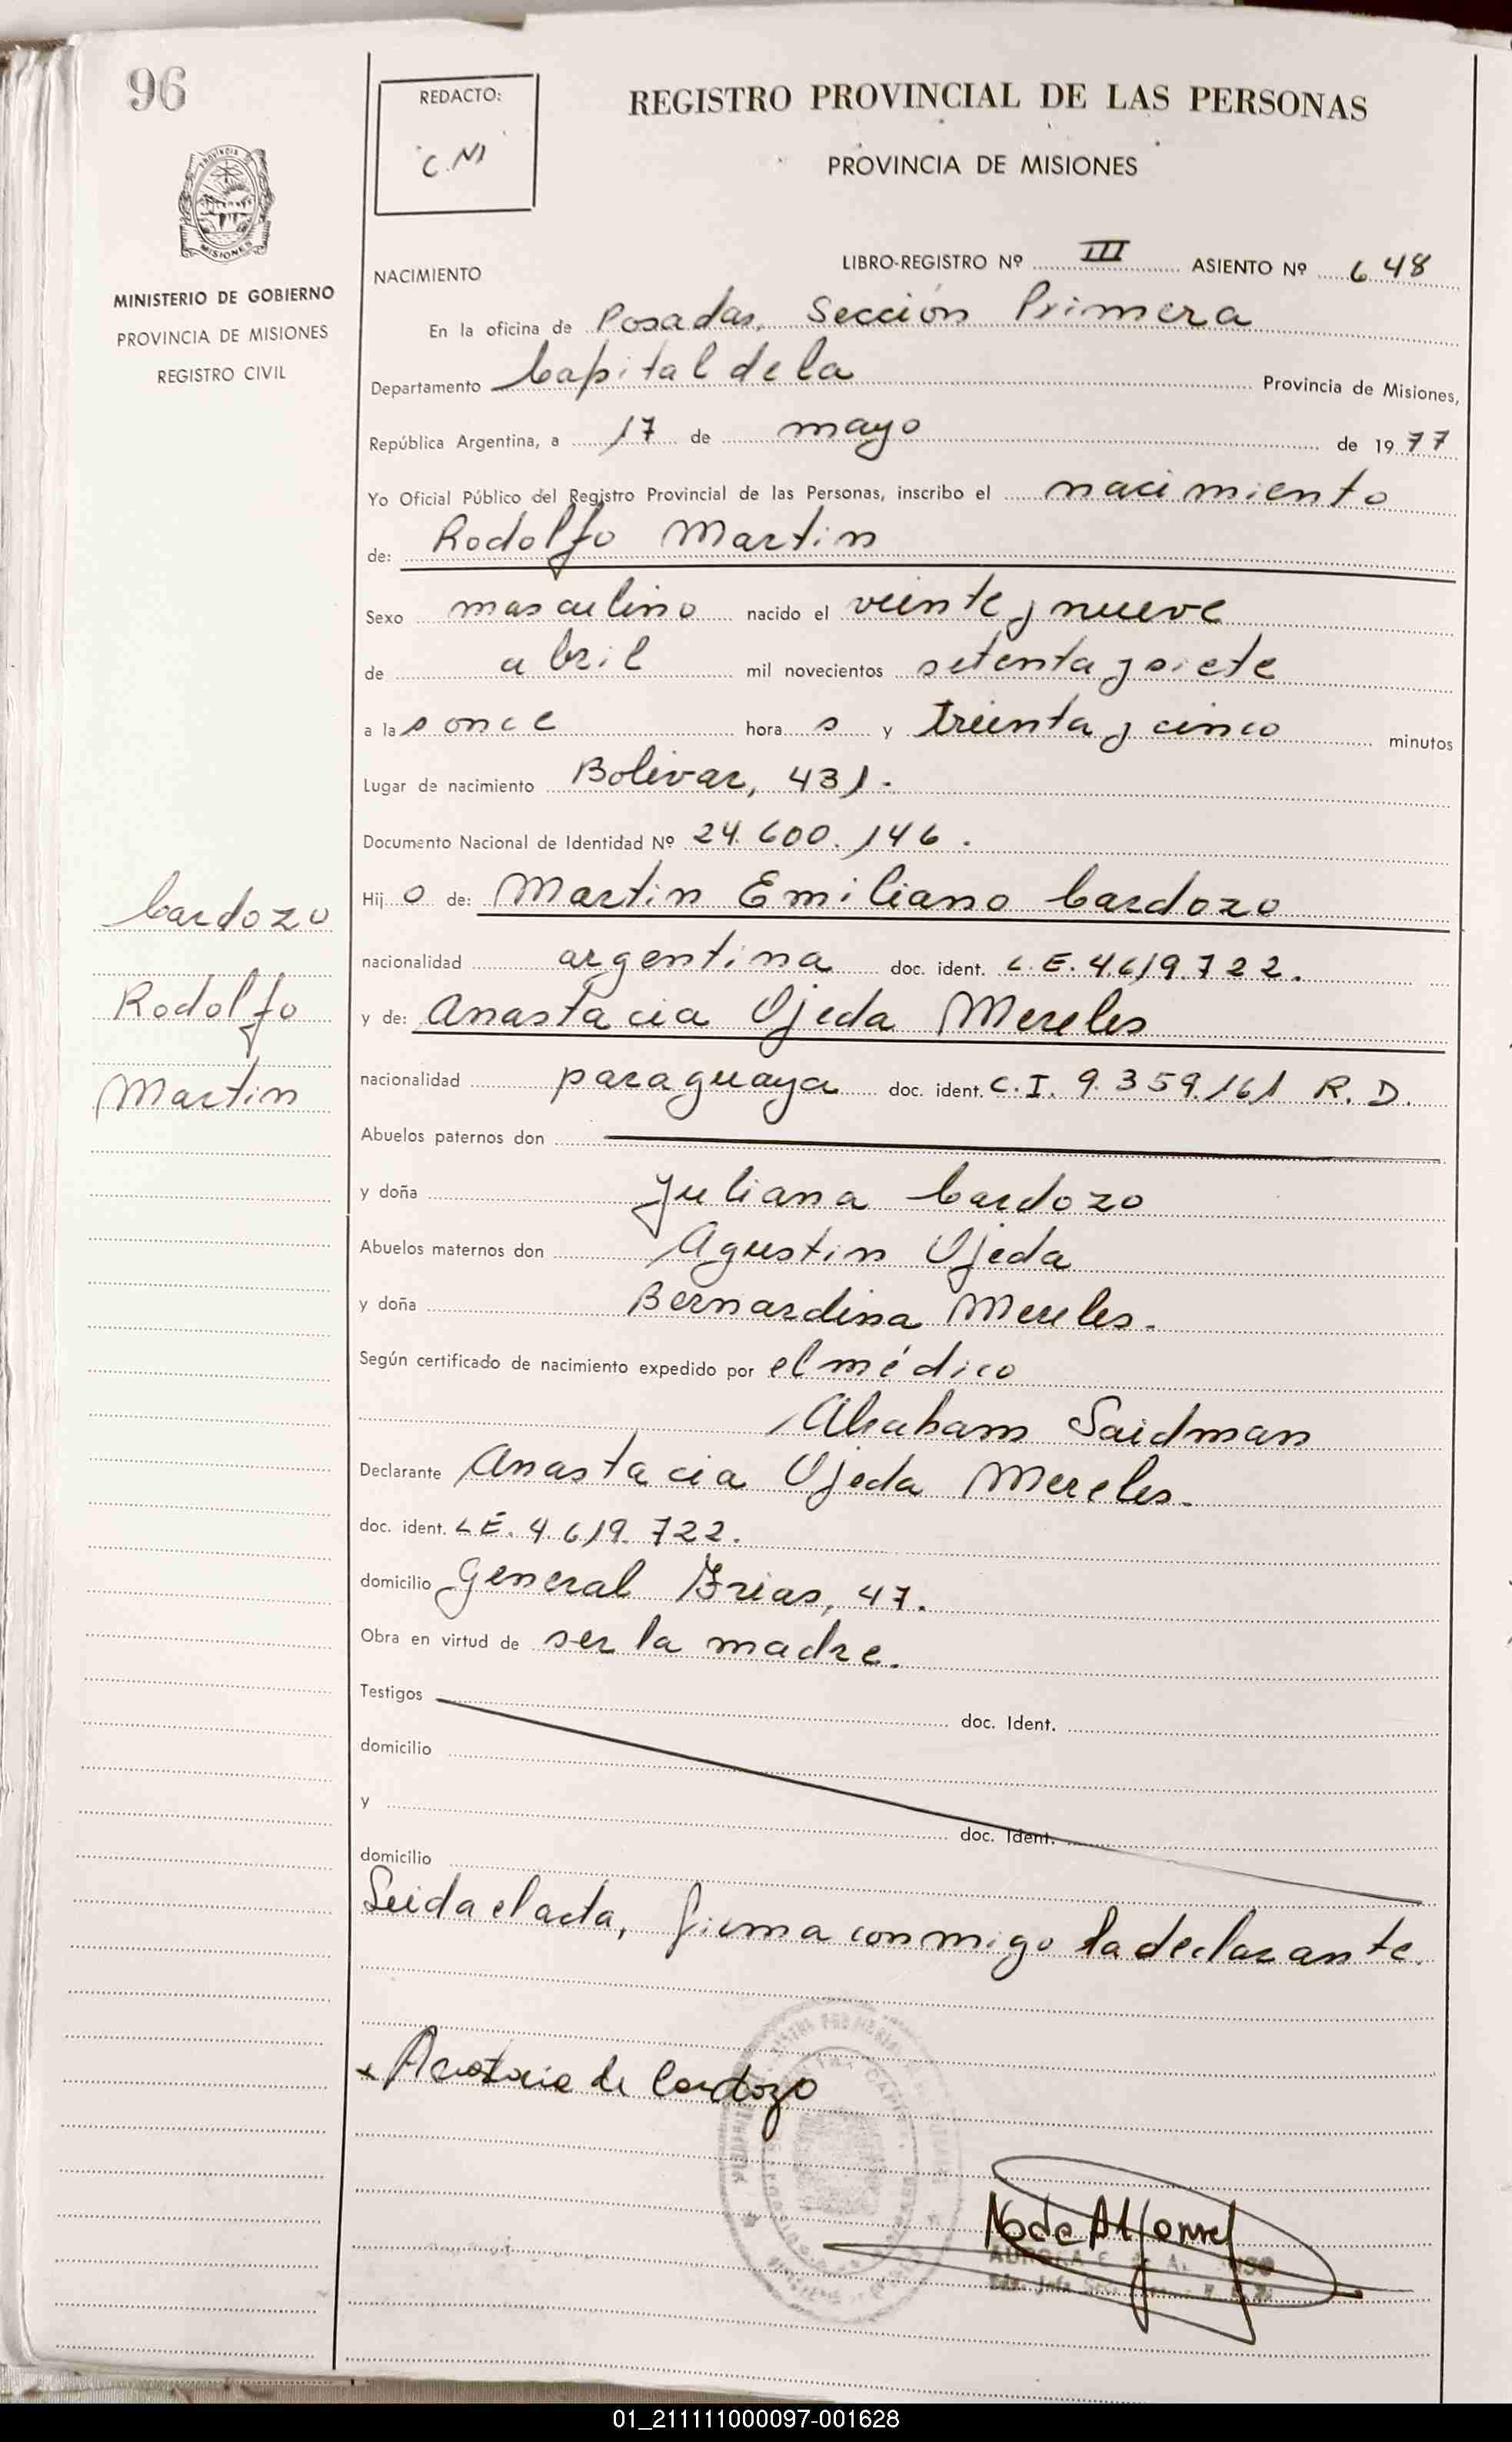 96
REDACTO:
C.N
REGISTRO PROVINCIAL DE LAS PERSONAS
PROVINCIA DE MISIONES
MISIONES
MINISTERIO DE GOBIERNO
PROVINCIA DE MISIONES
REGISTRO CIVIL
NACIMIENTO
LIBRO-REGISTRO Nº III ASIENTO Nº 648
En la oficina de Posadas, Sección Primera
Departamento Capital de la Provincia de Misiones,
República Argentina, a 17 de mayo de 1977
Yo Oficial Público del Registro Provincial de las Personas, inscribo el nacimiento
de: Rodolfo Martin
Sexo masculino nacido el veinte y nueve
de abril mil novecientos setenta y siete
a las once horas y treinta y cinco minutos
Lugar de nacimiento Bolivar, 431.
Documento Nacional de Identidad Nº 24.600.146.
Hijo de: Martin Emiliano Cardozo
nacionalidad argentina doc. ident. L.E. 4.619.722.
y de: Anastacia Ojeda Mereles
nacionalidad paraguaya doc. ident. C.I. 9.359.161 R.D.
Abuelos paternos don
y doña Juliana Cardozo
Abuelos maternos don Agustin Ojeda
y doña Bernardina Mereles.
Según certificado de nacimiento expedido por el médico
Abraham Saidman
Declarante Anastacia Ojeda Mereles.
doc. ident. L.E. 4.619.722.
domicilio General Frias, 47.
Obra en virtud de ser la madre.
Testigos doc. Ident.
domicilio
y doc. Ident.
domicilio
Leida el acta, firma conmigo la declarante.
Cardozo
Rodolfo
Martin
x de Cardozo
01_211111000097-001628